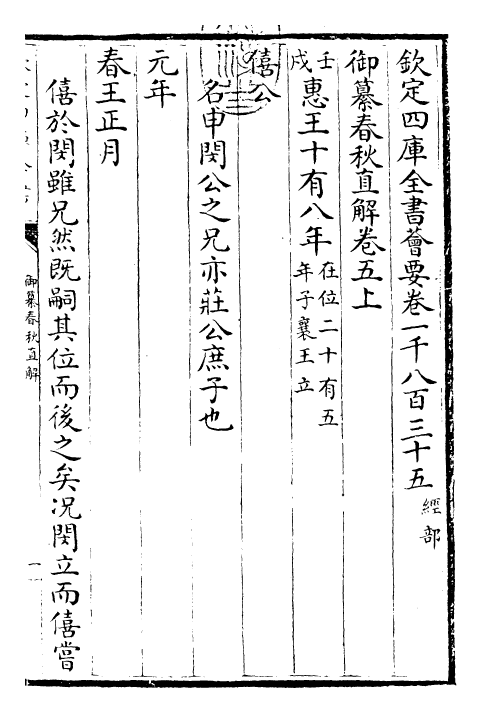 欽定四庫全書薈要卷一千八百三十五 經部
御纂春秋直解卷五上
壬戌 惠王十有八年 在位二十有五年子襄王立
僖公
名申閔公之兄亦莊公庶子也
元年
春王正月
僖於閔雖兄然既嗣其位而後之矣况閔立而僖嘗
御纂春秋直解
一